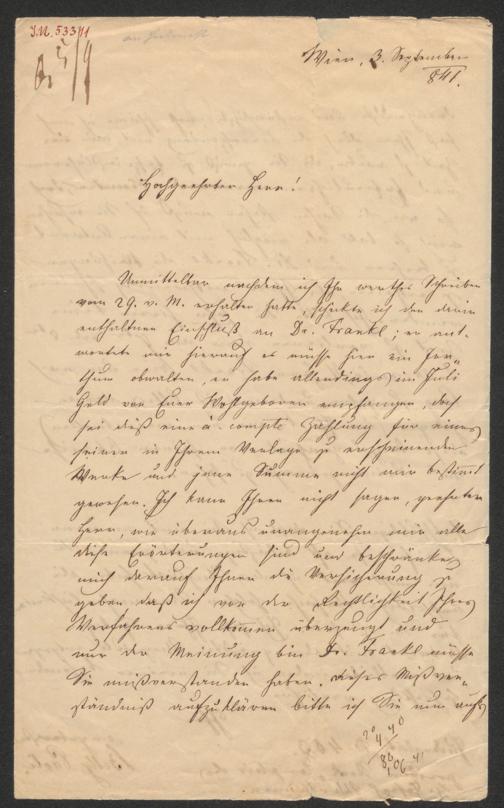 I.N. 53311
Wien, 3. September
841.
Hochgeehrter Herr!
Unmittelbar nachdem ich Ihr werthes Schreiben
vom 29. v. M. erhalten hatte, schickte ich den darin
enthaltnen Einschluß an Dr. Frankl; er ant-
wortete mir hierauf es müsse hier ein Irr-
thum obwalten, er habe allerdings im Juli
Geld von Euer Wohlgeboren empfangen, doch
sei dieß eine à compte Zahlung für eines
seiner in Ihrem Verlage zu erscheinenden
Werke und jene Summe nicht mir bestimmt
gewesen. Ich kann Ihnen nicht sagen, geehrter
Herr, wie überaus unangenehm mir alle
diese Erörterungen sind und beschränke
mich darauf Ihnen die Versicherung zu
geben daß ich von der Rechtlichkeit Ihres
Verfahrens vollkommen überzeugt und
nur der Meinung bin Dr. Frankl müsse
Sie mißverstanden haben. Dieses Mißver-
ständniß aufzuklären bitte ich Sie nun aufs